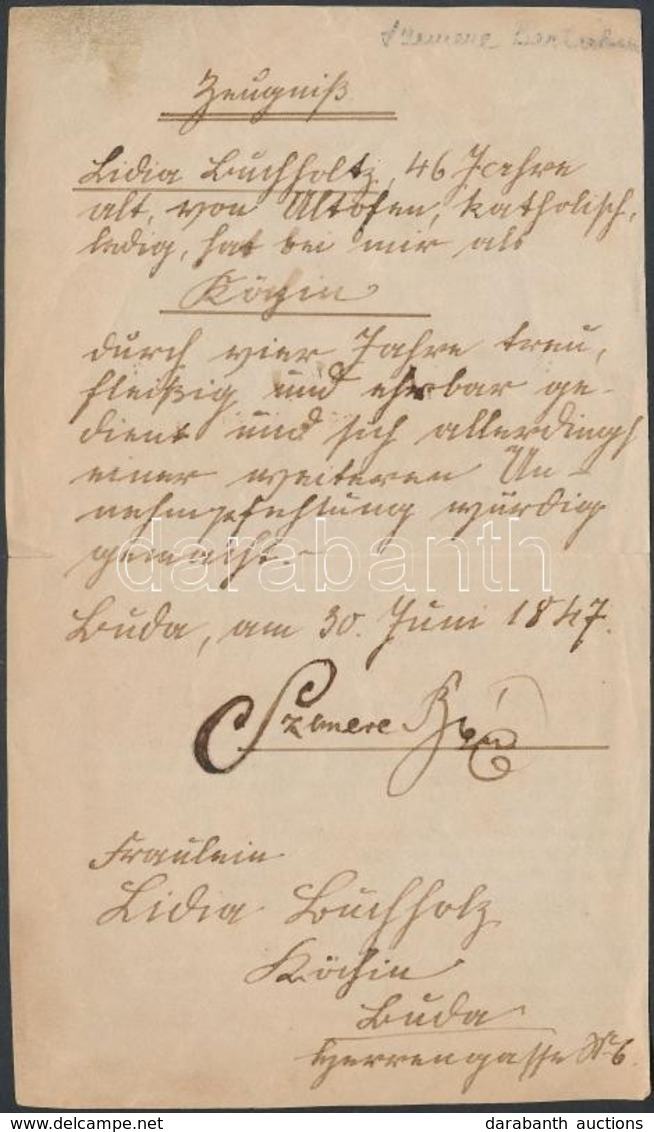 Szemere Bertalan
Zeugniß
Lidia Buchholtz, 46 Jahre
alt, von Altofen, katholisch,
ledig, hat bei mir als
Köchin
durch vier Jahre treu,
fleißig und ehrbar ge-
dient und sich allerdings
einer weiteren An-
nehmpfehlung würdig
gemacht.-
Buda, am 30. Juni 1847.
Szemere
Fraulein
Lidia Buchholz
Köchin
Buda
Herrengasse No 6.
darabanth
darabanth auctions